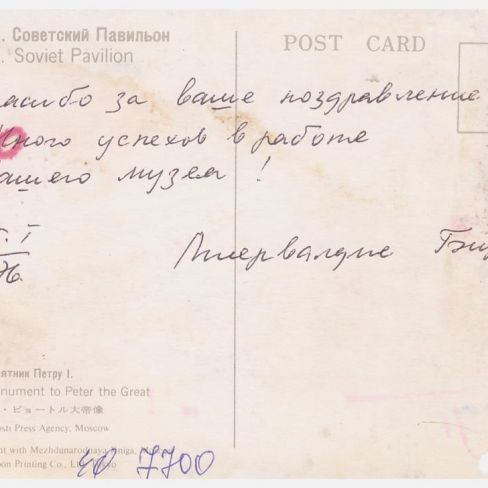 . Советский Павильон
. Soviet Pavilion
POST CARD
асибо за ваше поздравление
Много успехов в работе
ашего музея !
. I
76.
ятник Петру I.
nument to Peter the Great
・ピョートル大帝像
osti Press Agency, Moscow
nt with Mezhdunarodnaya Kniga,
pon Printing Co., Ltd., Tokyo
7700